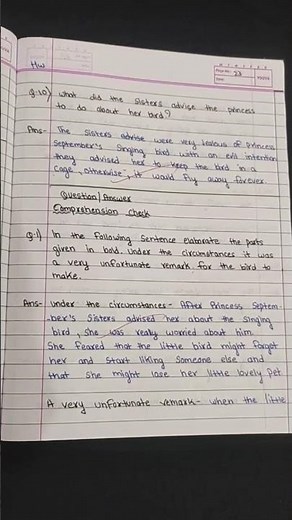 H/W
Page No.: 23
Date
Q.10) What did the sisters advise the princess
to do about her bird?
Ans- The sisters advise were very jealous of Princess
September's singing bird with an evil intention
they advised her to keep the bird in a
cage, otherwise, it would fly away forever.
Question/Answer
Comprehension Check
Q.1) In the following sentence elaborate the parts
given in bold. Under the circumstances it was
a very unfortunate remark for the bird to
make.
Ans- Under the circumstances- After Princess Septem
-ber's sisters advised her about the singing
bird, she was really worried about him.
She feared that the little bird might forget
her and start liking someone else and
that she might lose her little lovely pet
A very unfortunate remark- when the little